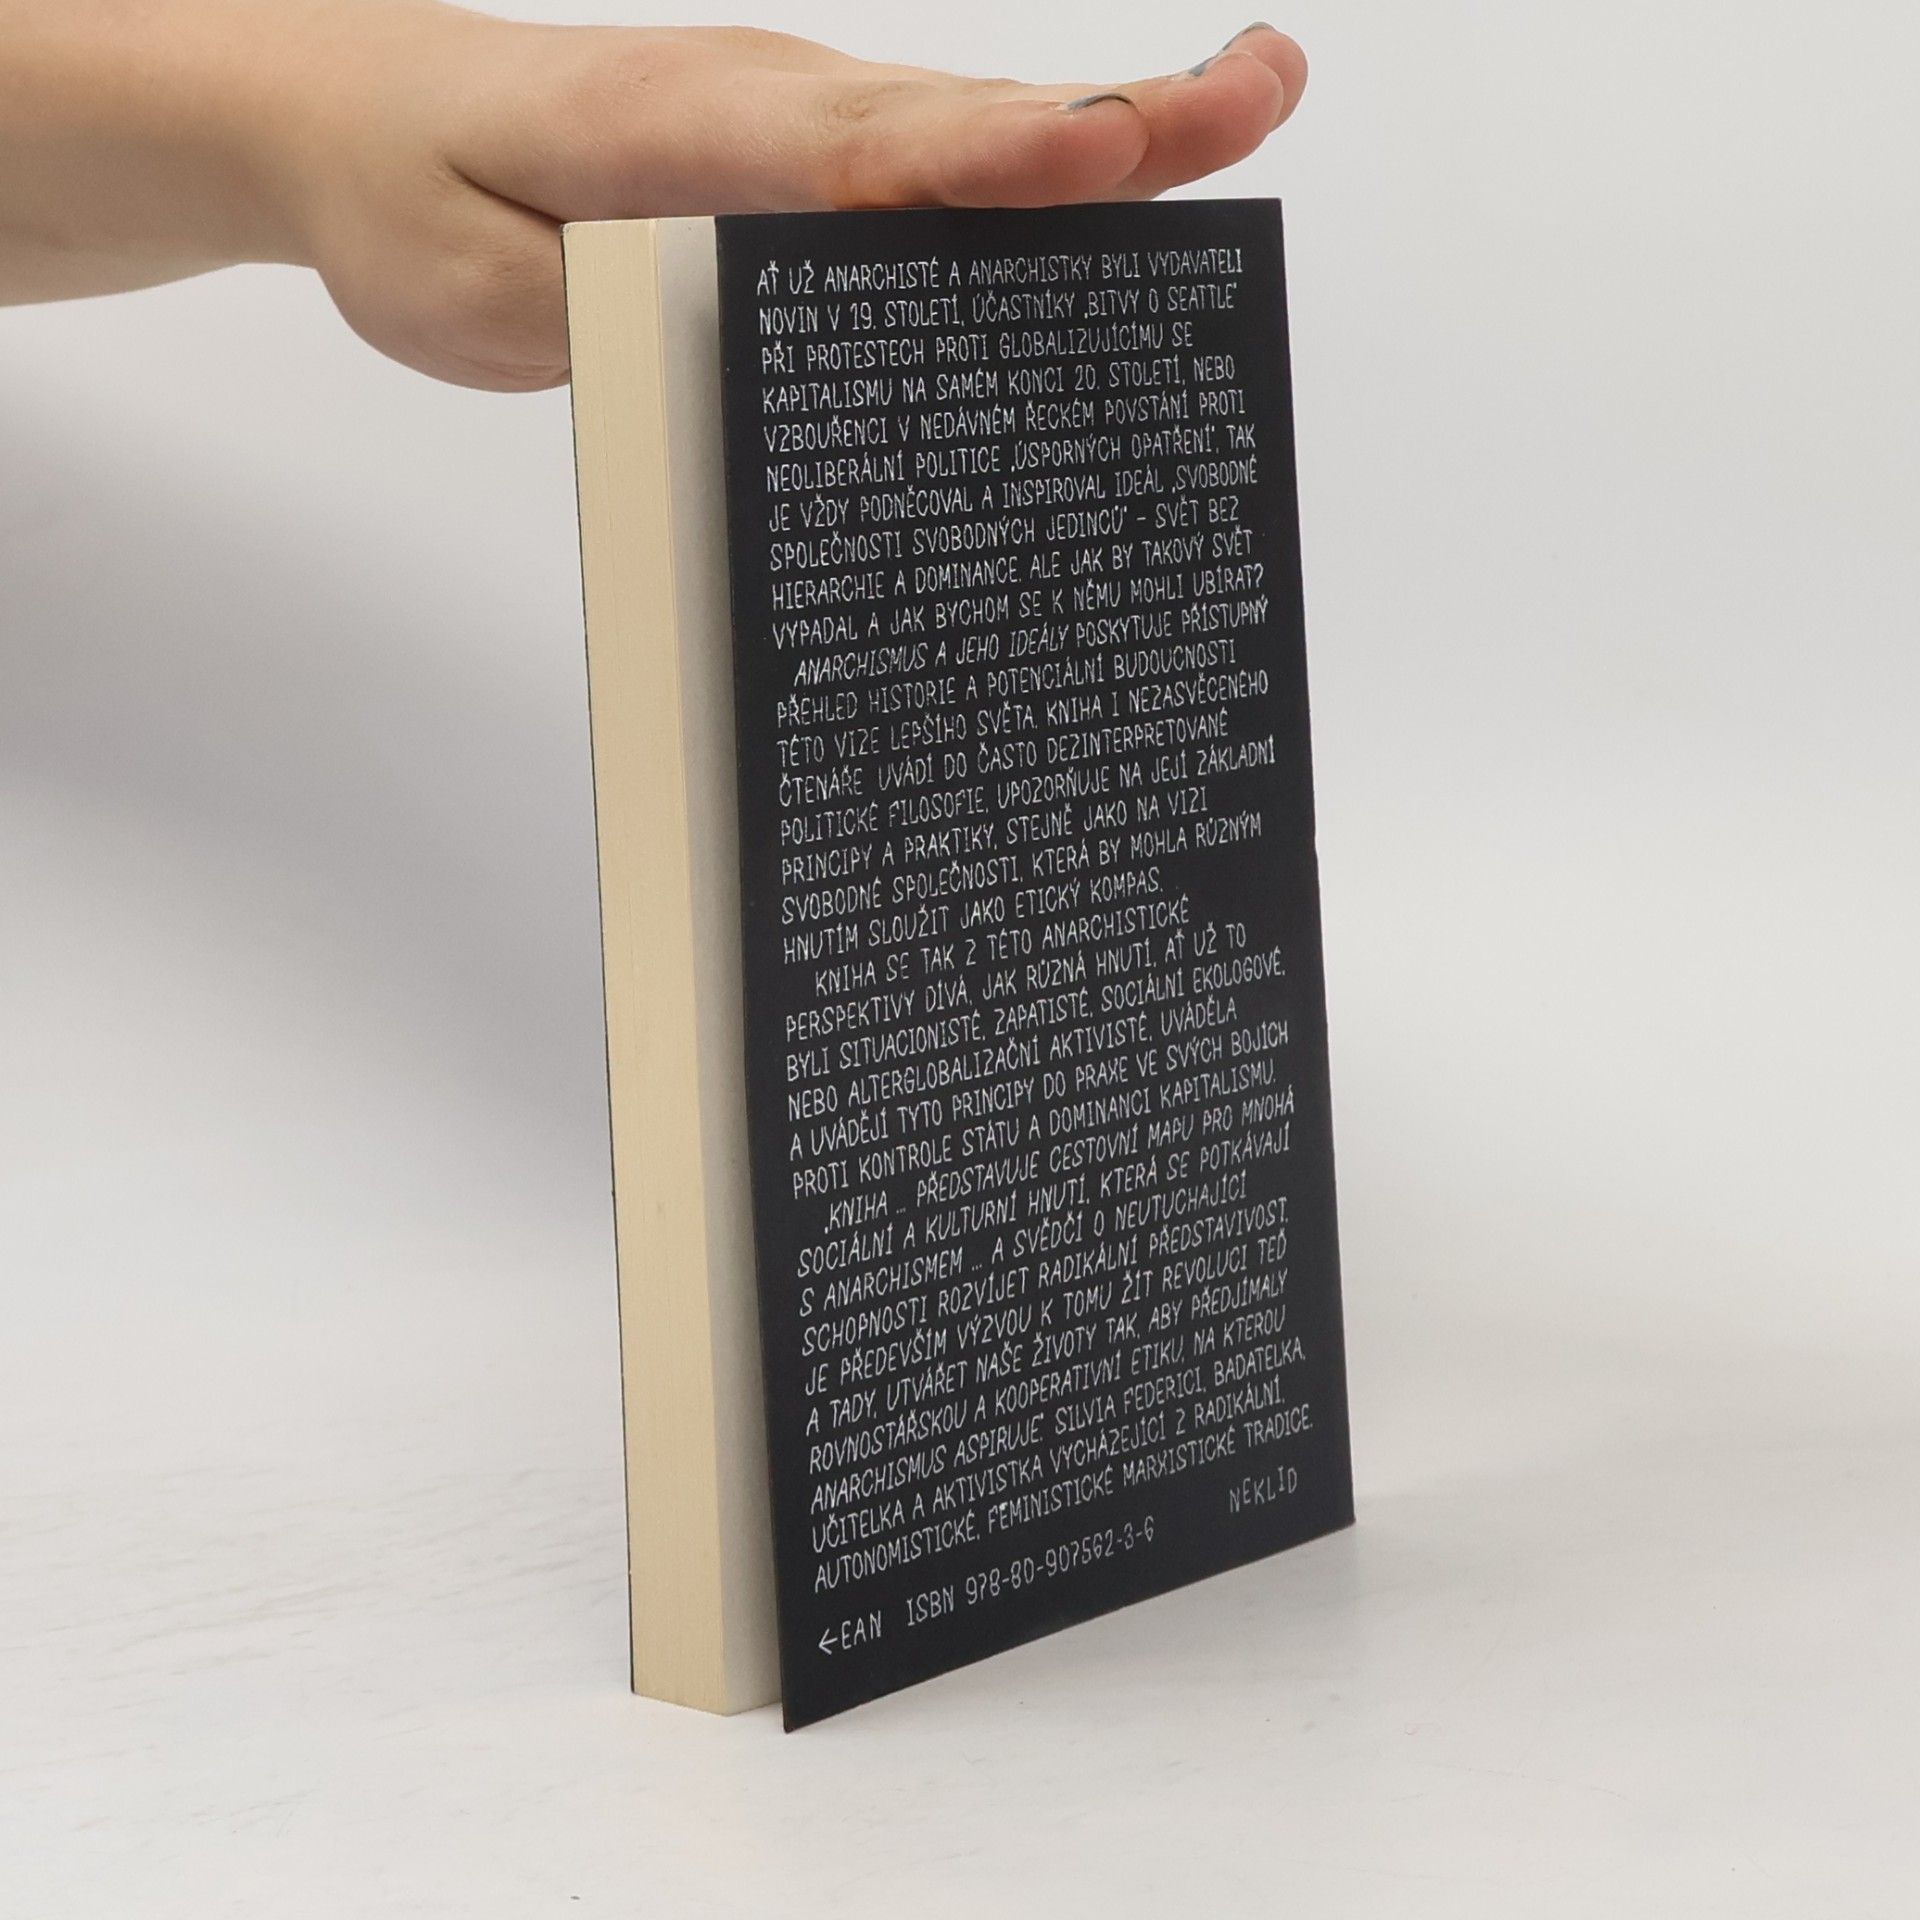 AŤ UŽ ANARCHISTÉ A ANARCHISTKY BYLI VYDAVATELI
NOVIN V 19. STOLETÍ, ÚČASTNÍKY ‚BITVY O SEATTLE‘
PŘI PROTESTECH PROTI GLOBALIZUJÍCÍMU SE
KAPITALISMU NA SAMÉM KONCI 20. STOLETÍ, NEBO
VZBOUŘENCI V NEDÁVNÉM ŘECKÉM POVSTÁNÍ PROTI
NEOLIBERÁLNÍ POLITICE ‚ÚSPORNÝCH OPATŘENÍ‘, TAK
JE VŽDY PODNĚCOVAL A INSPIROVAL IDEÁL ‚SVOBODNÉ
SPOLEČNOSTI SVOBODNÝCH JEDINCŮ‘ – SVĚT BEZ
HIERARCHIE A DOMINANCE. ALE JAK BY TAKOVÝ SVĚT
VYPADAL A JAK BYCHOM SE K NĚMU MOHLI UBÍRAT?
ANARCHISMUS A JEHO IDEÁLY POSKYTUJE PŘÍSTUPNÝ
PŘEHLED HISTORIE A POTENCIÁLNÍ BUDOUCNOSTI
TÉTO VIZE LEPŠÍHO SVĚTA. KNIHA I NEZASVĚCENÉHO
ČTENÁŘE UVÁDÍ DO ČASTO DEZINTERPRETOVANÉ
POLITICKÉ FILOSOFIE, UPOZORŇUJE NA JEJÍ ZÁKLADNÍ
PRINCIPY A PRAKTIKY, STEJNĚ JAKO NA VIZI
SVOBODNÉ SPOLEČNOSTI, KTERÁ BY MOHLA RŮZNÝM
HNUTÍM SLOUŽIT JAKO ETICKÝ KOMPAS.
KNIHA SE TAK Z TÉTO ANARCHISTICKÉ
PERSPEKTIVY DÍVÁ, JAK RŮZNÁ HNUTÍ, AŤ UŽ TO
BYLI SITUACIONISTÉ, ZAPATISTÉ, SOCIÁLNÍ EKOLOGOVÉ,
NEBO ALTERGLOBALIZAČNÍ AKTIVISTÉ, UVÁDĚLA
A UVÁDĚJÍ TYTO PRINCIPY DO PRAXE VE SVÝCH BOJÍCH
PROTI KONTROLE STÁTU A DOMINANCI KAPITALISMU.
‚KNIHA ... PŘEDSTAVUJE CESTOVNÍ MAPU PRO MNOHÁ
SOCIÁLNÍ A KULTURNÍ HNUTÍ, KTERÁ SE POTKÁVAJÍ
S ANARCHISMEM ... A SVĚDČÍ O NEUTUCHAJÍCÍ
SCHOPNOSTI ROZVÍJET RADIKÁLNÍ PŘEDSTAVIVOST.
JE PŘEDEVŠÍM VÝZVOU K TOMU ŽÍT REVOLUCI TEĎ
A TADY, UTVÁŘET NAŠE ŽIVOTY TAK, ABY PŘEDJÍMALY
ROVNOSTÁŘSKOU A KOOPERATIVNÍ ETIKU, NA KTEROU
ANARCHISMUS ASPIRUJE.‘ SILVIA FEDERICI, BADATELKA,
UČITELKA A AKTIVISTKA VYCHÁZEJÍCÍ Z RADIKÁLNÍ,
AUTONOMISTICKÉ, FEMINISTICKÉ MARXISTICKÉ TRADICE.
NEKLID
←EAN ISBN 978-80-907562-3-6